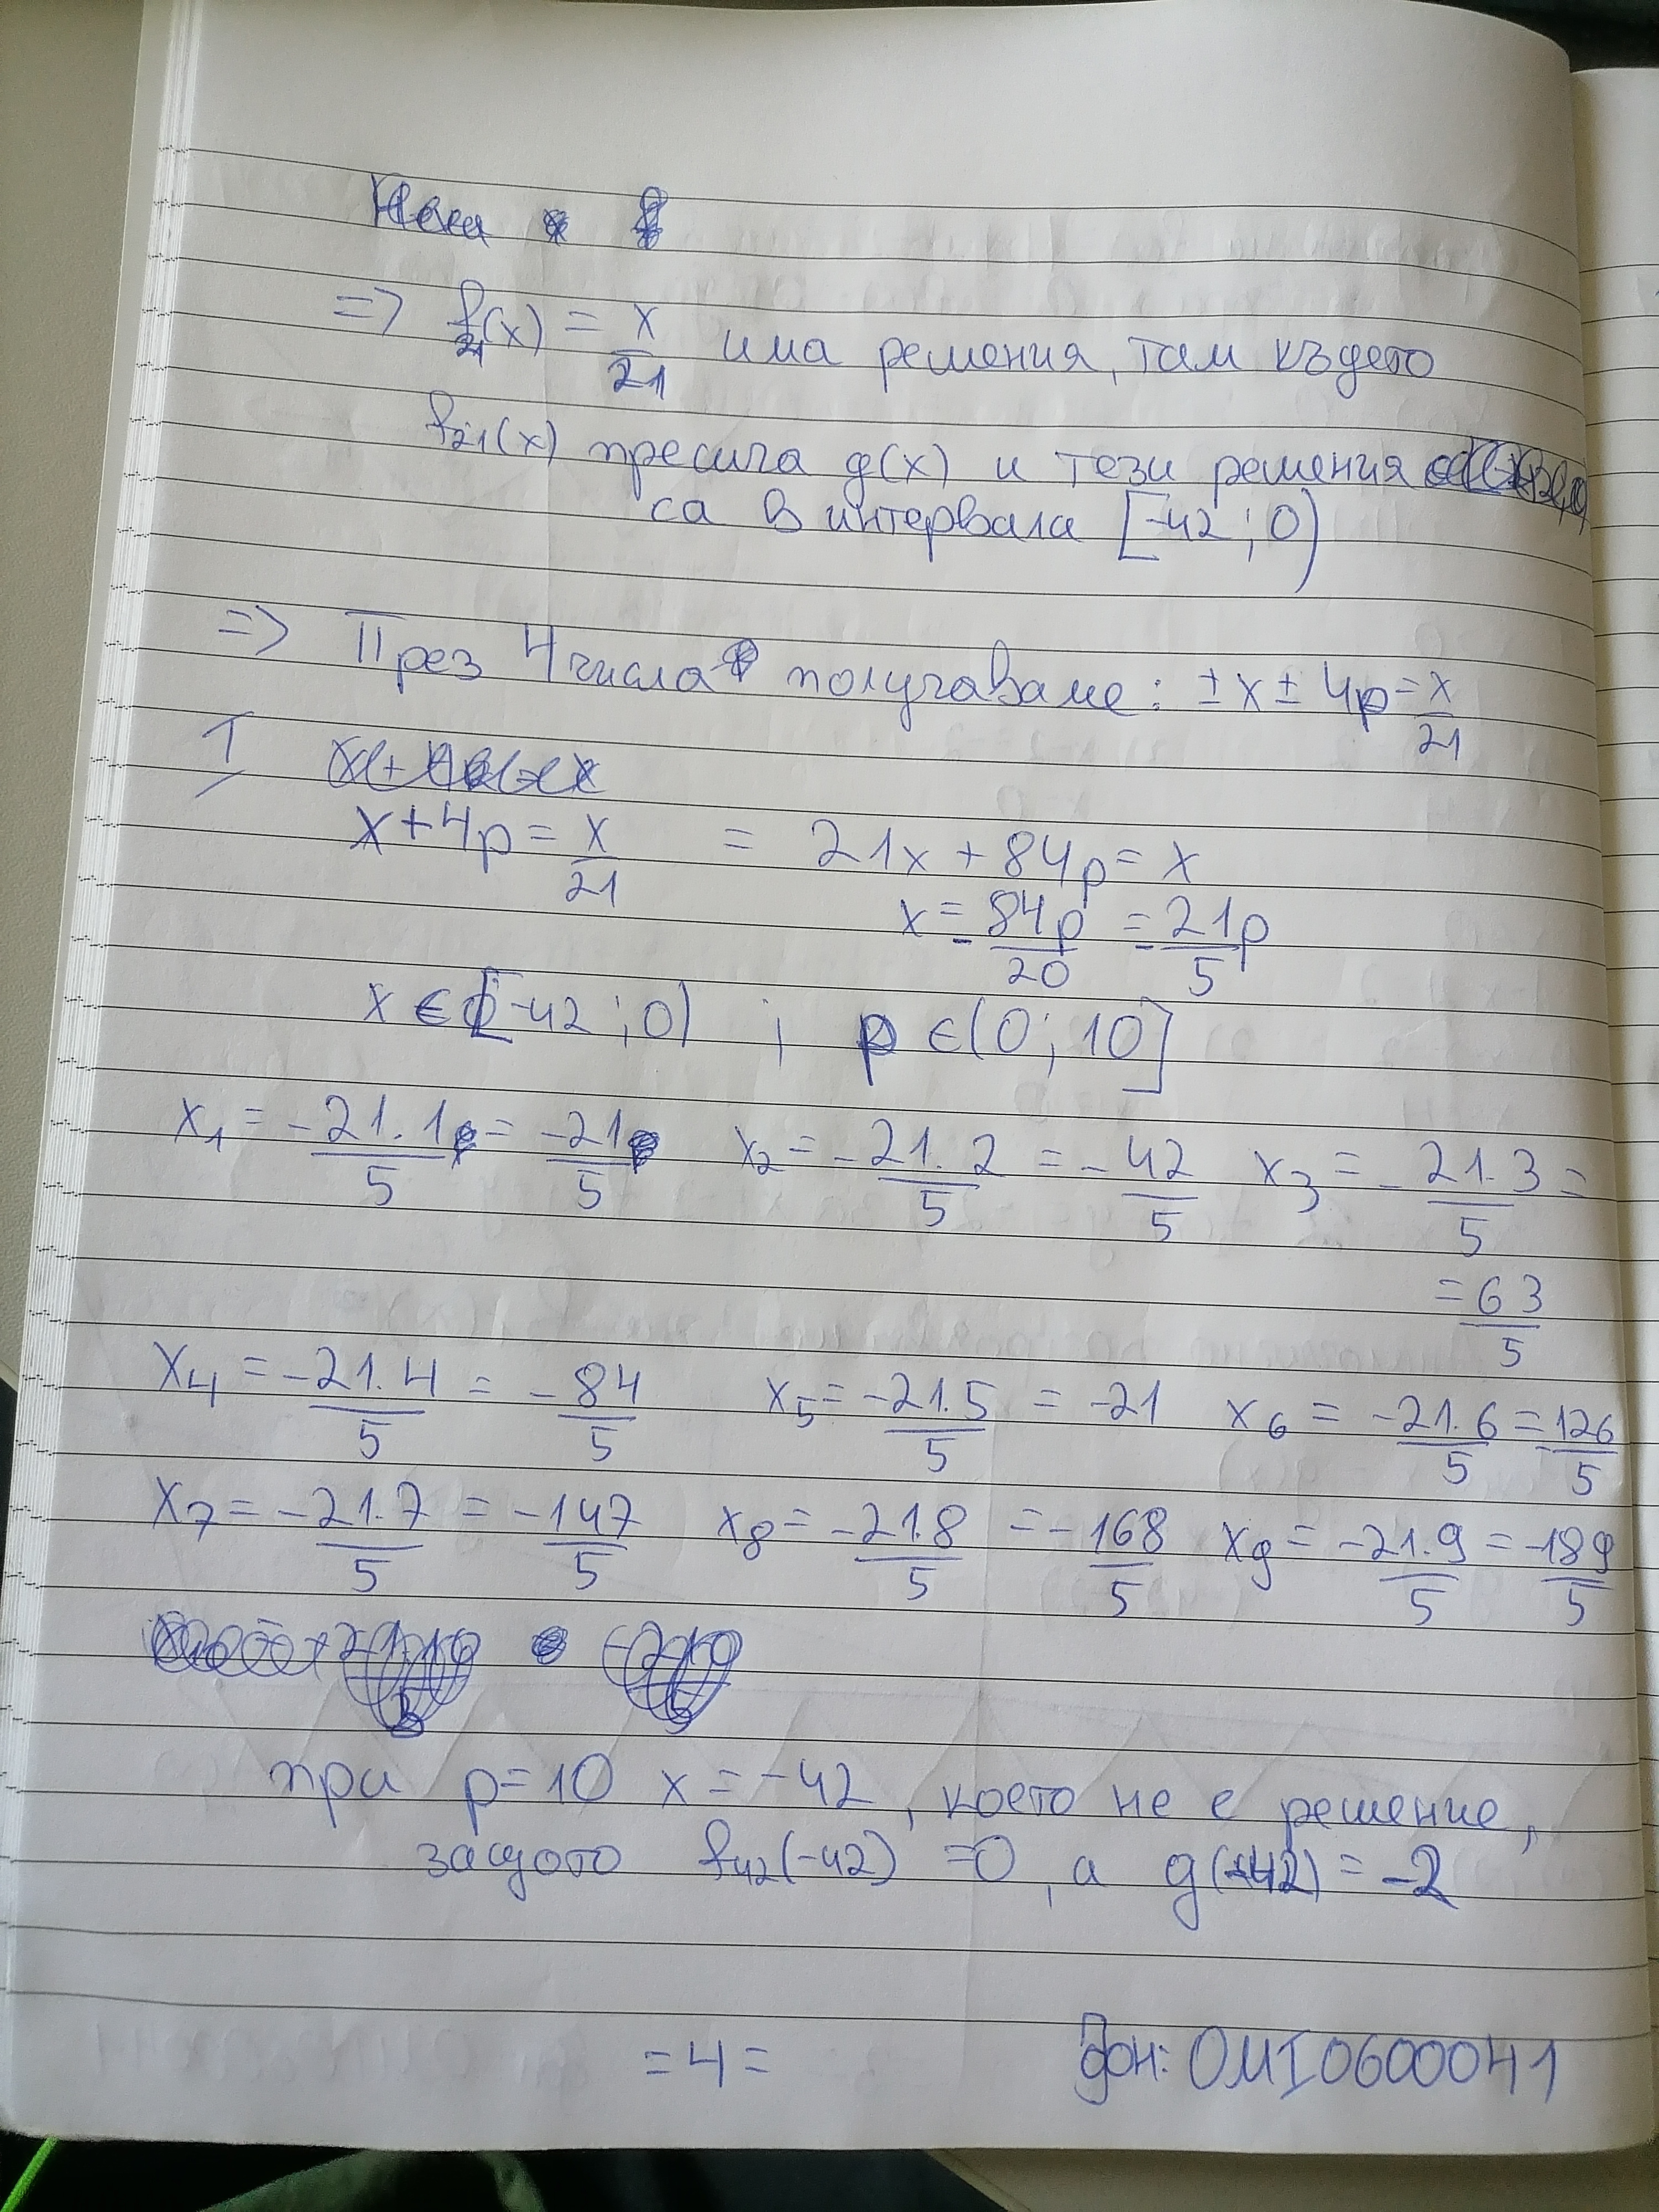 => f₂₁(x) = x/21 има решения, там където
f₂₁(x) пресича g(x) и тези решения
са в интервала [-42 ; 0)
=> През 4 числа получаваме: ± x ± 4p = x/21
I
x + 4p = x/21 = 21x + 84p = x
x = - 84p/20 = - 21/5 p
x ∈ [-42 ; 0) ; p ∈ (0 ; 10]
x₁ = - 21.1/5 = -21/5 x₂ = - 21.2/5 = - 42/5 x₃ = - 21.3/5 =
= 63/5
x₄ = - 21.4/5 = - 84/5 x₅ = -21.5/5 = -21 x₆ = -21.6/5 = -126/5
x₇ = - 21.7/5 = -147/5 x₈ = -21.8/5 = - 168/5 x₉ = -21.9/5 = -189/5
при p=10 x = -42, което не е решение,
защото f₄₂(-42) =0, а g(-42) = -2
=4= Фон: OMI0600041